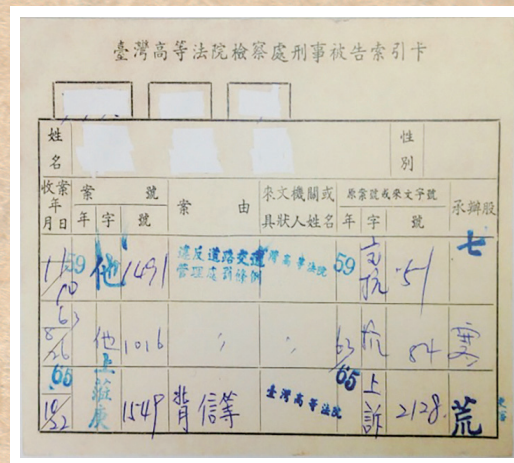 臺灣高等法院檢察處刑事被告索引卡
姓名 性別
收案年月日 案號 年 字 號 案由 來文機關或具狀人姓名 原案號或來文字號 年 字 號 承辦股
59 他 1491 違反道路交通管理處罰條例 臺灣高等法院 59 交抗 51 七
63 8/26 他 1016 〃 〃 63 抗 84
65 10/22 上莊庚 1549 背信等 臺灣高等法院 65 上訴 2128 荒